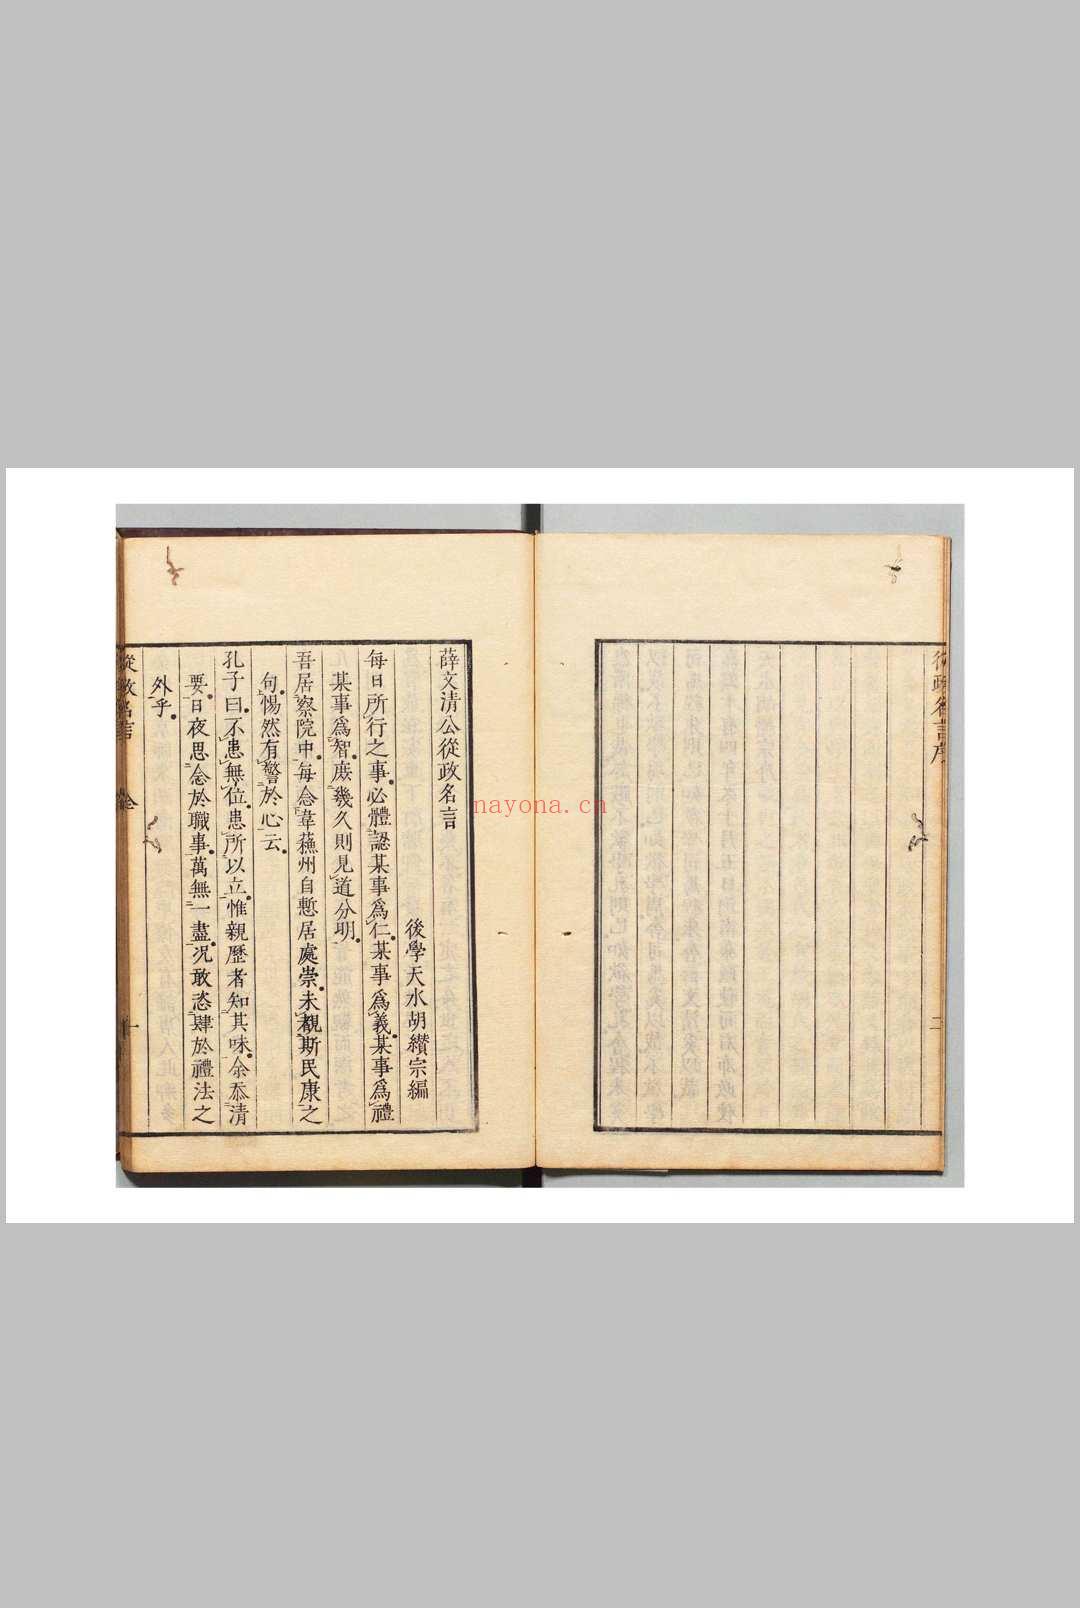 從政名言序
二
薛文清公從政名言
後學天水胡纘宗編
每日所行之事必體認某事爲仁某事爲義某事爲禮
某事爲智庶幾久則見道分明
吾居察院中每念韋蘇州自慙居處崇未覩斯民康之
句惕然有警於心云
孔子曰不患無位患所以立惟親歷者知其味余忝清
要日夜思念於職事萬無一盡况敢恣肆於禮法之
外乎
從政名言
全
一
nayona.cn